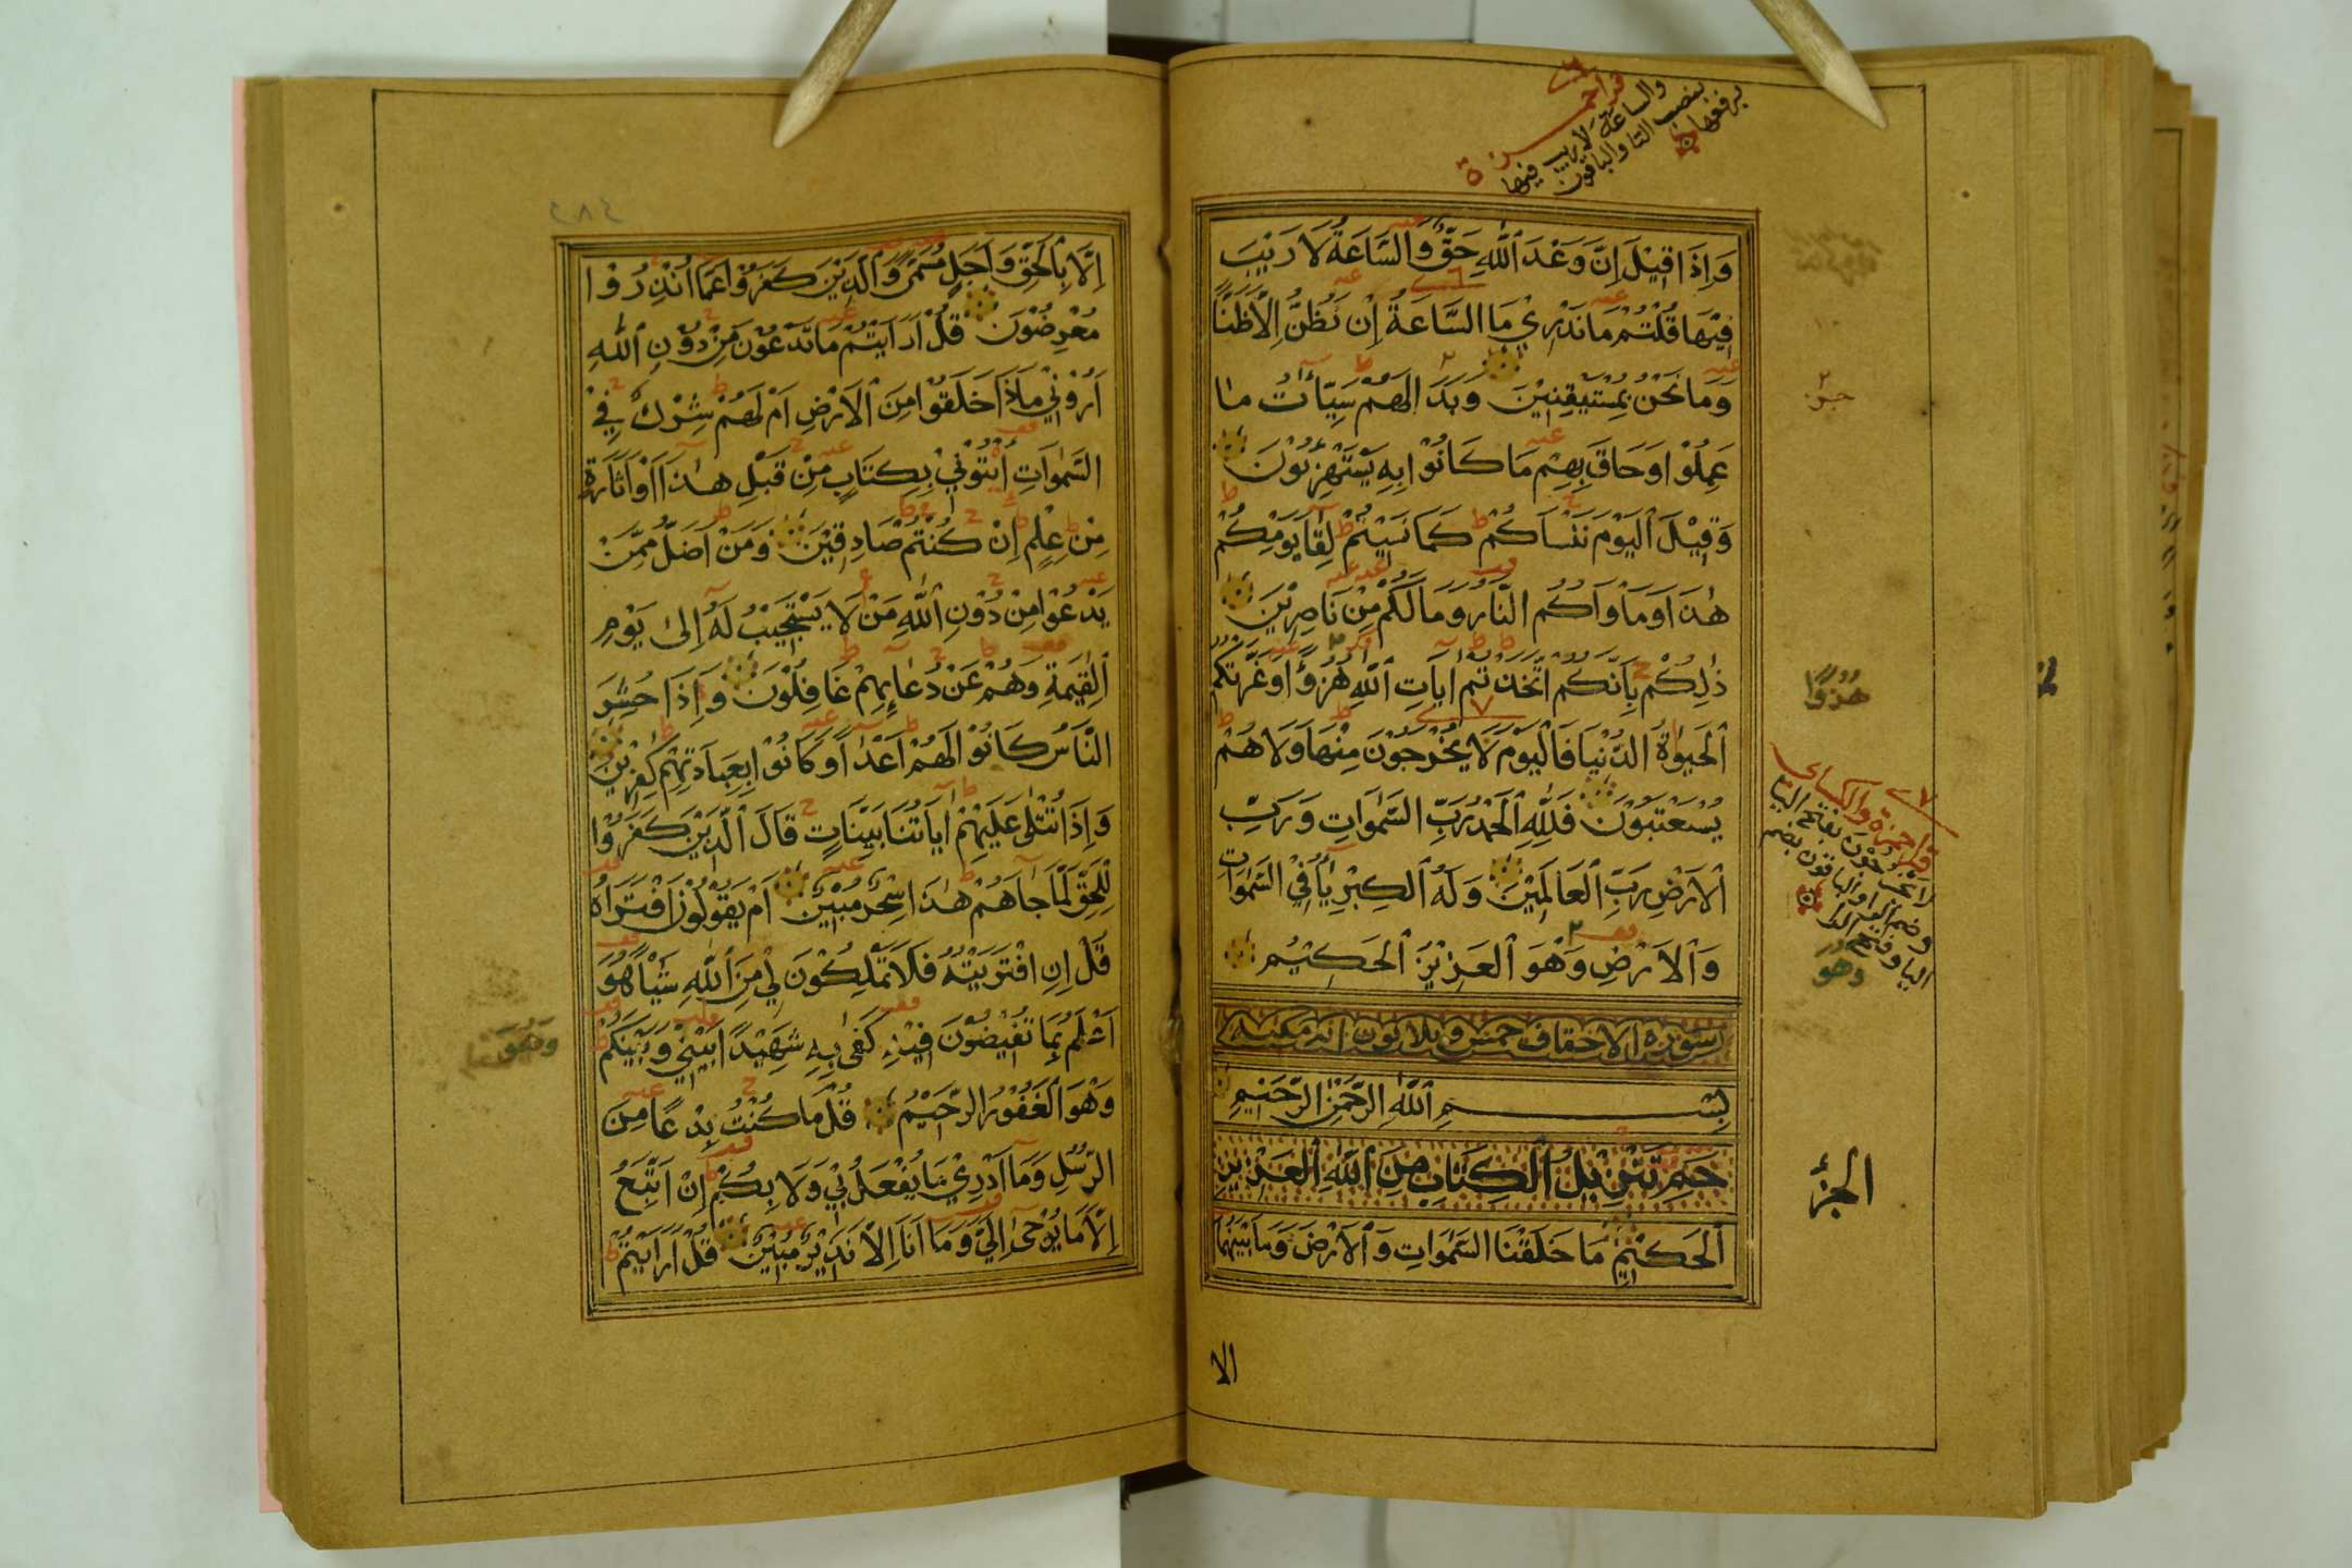 قرا حمزة
والساعة لا ريب فيها
بنصب التا والباقون
برفعها
وَإِذَا قِيْلَ إِنَّ وَعْدَ اللّٰهِ حَقٌّ وَالسَّاعَةُ لَا رَيْبَ
فِيْهَا قُلْتُمْ مَا نَدْرِيْ مَا السَّاعَةُ إِنْ نَظُنُّ اِلَّا ظَنًّا
وَمَا نَحْنُ بِمُسْتَيْقِنِيْنَ وَبَدَا لَهُمْ سَيِّاٰتُ مَا
عَمِلُوْا وَحَاقَ بِهِمْ مَا كَانُوْا بِهِ يَسْتَهْزِئُوْنَ
وَقِيْلَ الْيَوْمَ نَنْسَاكُمْ كَمَا نَسِيْتُمْ لِقَا يَوْمِكُمْ
هٰذَا وَمَاْوَاكُمُ النَّارُ وَمَا لَكُمْ مِنْ نَاصِرِيْنَ
ذٰلِكُمْ بِاَنَّكُمُ اتَّخَذْتُمْ اٰيَاتِ اللّٰهِ هُزُؤًا وَغَرَّتْكُمُ
الْحَيٰوةُ الدُّنْيَا فَالْيَوْمَ لَا يُخْرَجُوْنَ مِنْهَا وَلَا هُمْ
يُسْتَعْتَبُوْنَ فَلِلّٰهِ الْحَمْدُ رَبِّ السَّمٰوَاتِ وَرَبِّ
الْاَرْضِ رَبِّ الْعَالَمِيْنَ وَلَهُ الْكِبْرِيَآءُ فِي السَّمٰوَاتِ
وَالْاَرْضِ وَهُوَ الْعَزِيْزُ الْحَكِيْمُ
سورة الاحقاف خمس وثلاثون اية مكية
بِسْمِ اللّٰهِ الرَّحْمٰنِ الرَّحِيْمِ
حٰمٓ تَنْزِيْلُ الْكِتَابِ مِنَ اللّٰهِ الْعَزِيْزِ
الْحَكِيْمِ مَا خَلَقْنَا السَّمٰوَاتِ وَالْاَرْضَ وَمَا بَيْنَهُمَا
الا
هُزُؤًا
قرا حمزة والكساى
لا يخرجون بفتح اليا
وضم الرا والباقون بضم
اليا وفتح الرا
وهو
الجزء
٢٨٤
اِلَّا بِالْحَقِّ وَاَجَلٍ مُسَمًّى وَالَّذِيْنَ كَفَرُوْا عَمَّا اُنْذِرُوْا
مُعْرِضُوْنَ قُلْ اَرَاَيْتُمْ مَا تَدْعُوْنَ مِنْ دُوْنِ اللّٰهِ
اَرُوْنِيْ مَاذَا خَلَقُوْا مِنَ الْاَرْضِ اَمْ لَهُمْ شِرْكٌ فِي
السَّمٰوَاتِ اُئْتُوْنِيْ بِكِتَابٍ مِنْ قَبْلِ هٰذَا اَوْ اَثَارَةٍ
مِنْ عِلْمٍ اِنْ كُنْتُمْ صَادِقِيْنَ وَمَنْ اَضَلُّ مِمَّنْ
يَدْعُوْا مِنْ دُوْنِ اللّٰهِ مَنْ لَا يَسْتَجِيْبُ لَهُ اِلٰى يَوْمِ
الْقِيٰمَةِ وَهُمْ عَنْ دُعَآئِهِمْ غَافِلُوْنَ وَاِذَا حُشِرَ
النَّاسُ كَانُوْا لَهُمْ اَعْدَآءً وَكَانُوْا بِعِبَادَتِهِمْ كٰفِرِيْنَ
وَاِذَا تُتْلٰى عَلَيْهِمْ اٰيَاتُنَا بَيِّنَاتٍ قَالَ الَّذِيْنَ كَفَرُوْا
لِلْحَقِّ لَمَّا جَآءَهُمْ هٰذَا سِحْرٌ مُبِيْنٌ اَمْ يَقُوْلُوْنَ افْتَرَاهُ
قُلْ اِنِ افْتَرَيْتُهُ فَلَا تَمْلِكُوْنَ لِيْ مِنَ اللّٰهِ شَيْـًٔا هُوَ
اَعْلَمُ بِمَا تُفِيْضُوْنَ فِيْهِ كَفٰى بِهِ شَهِيْدًا بَيْنِيْ وَبَيْنَكُمْ
وَهُوَ الْغَفُوْرُ الرَّحِيْمُ قُلْ مَا كُنْتُ بِدْعًا مِنَ
الرُّسُلِ وَمَا اَدْرِيْ مَا يُفْعَلُ بِيْ وَلَا بِكُمْ اِنْ اَتَّبِعُ
اِلَّا مَا يُوْحٰى اِلَيَّ وَمَا اَنَا اِلَّا نَذِيْرٌ مُبِيْنٌ قُلْ اَرَاَيْتُمْ
وَهُوَ